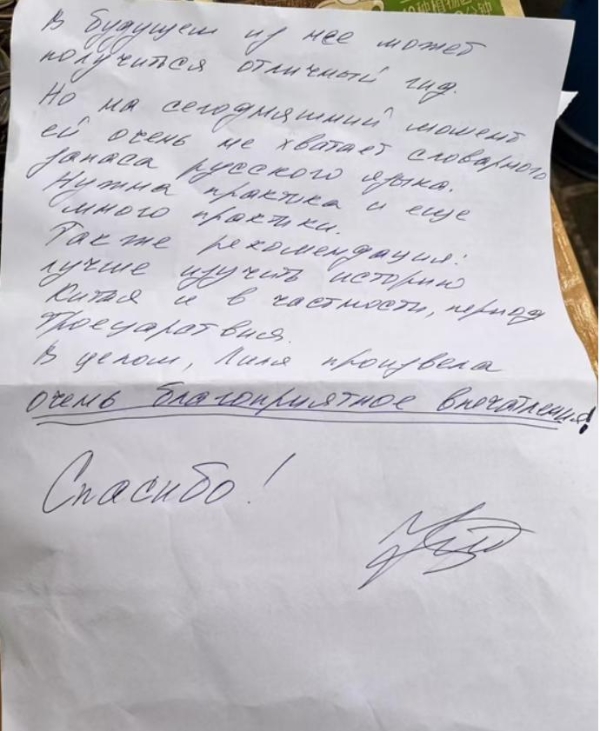 В будущем из нее может
получиться отличный гид.
Но на сегодняшний момент
ей очень не хватает словарного
запаса русского языка.
Нужна практика и еще
много практики.
Также рекомендация:
лучше изучить историю
Китая и в частности, период
Троецарствия.
В целом, Лиля произвела
очень благоприятное впечатление!
Спасибо!